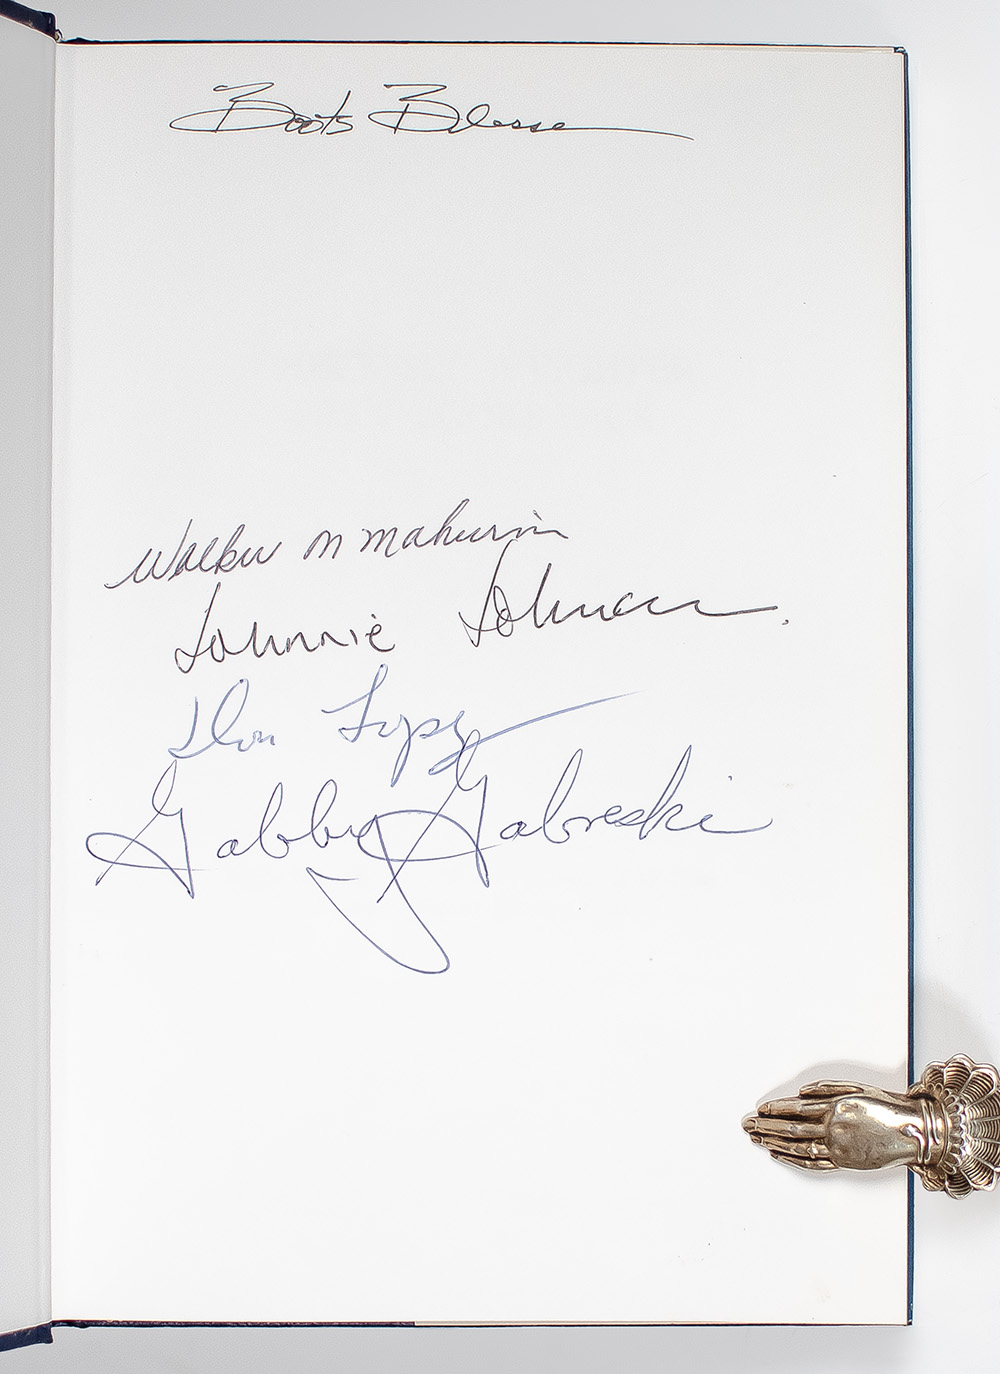 Boots Blesse
Walker M Mahurin
Johnnie Johnson
Don Lopez
Gabby Gabreski